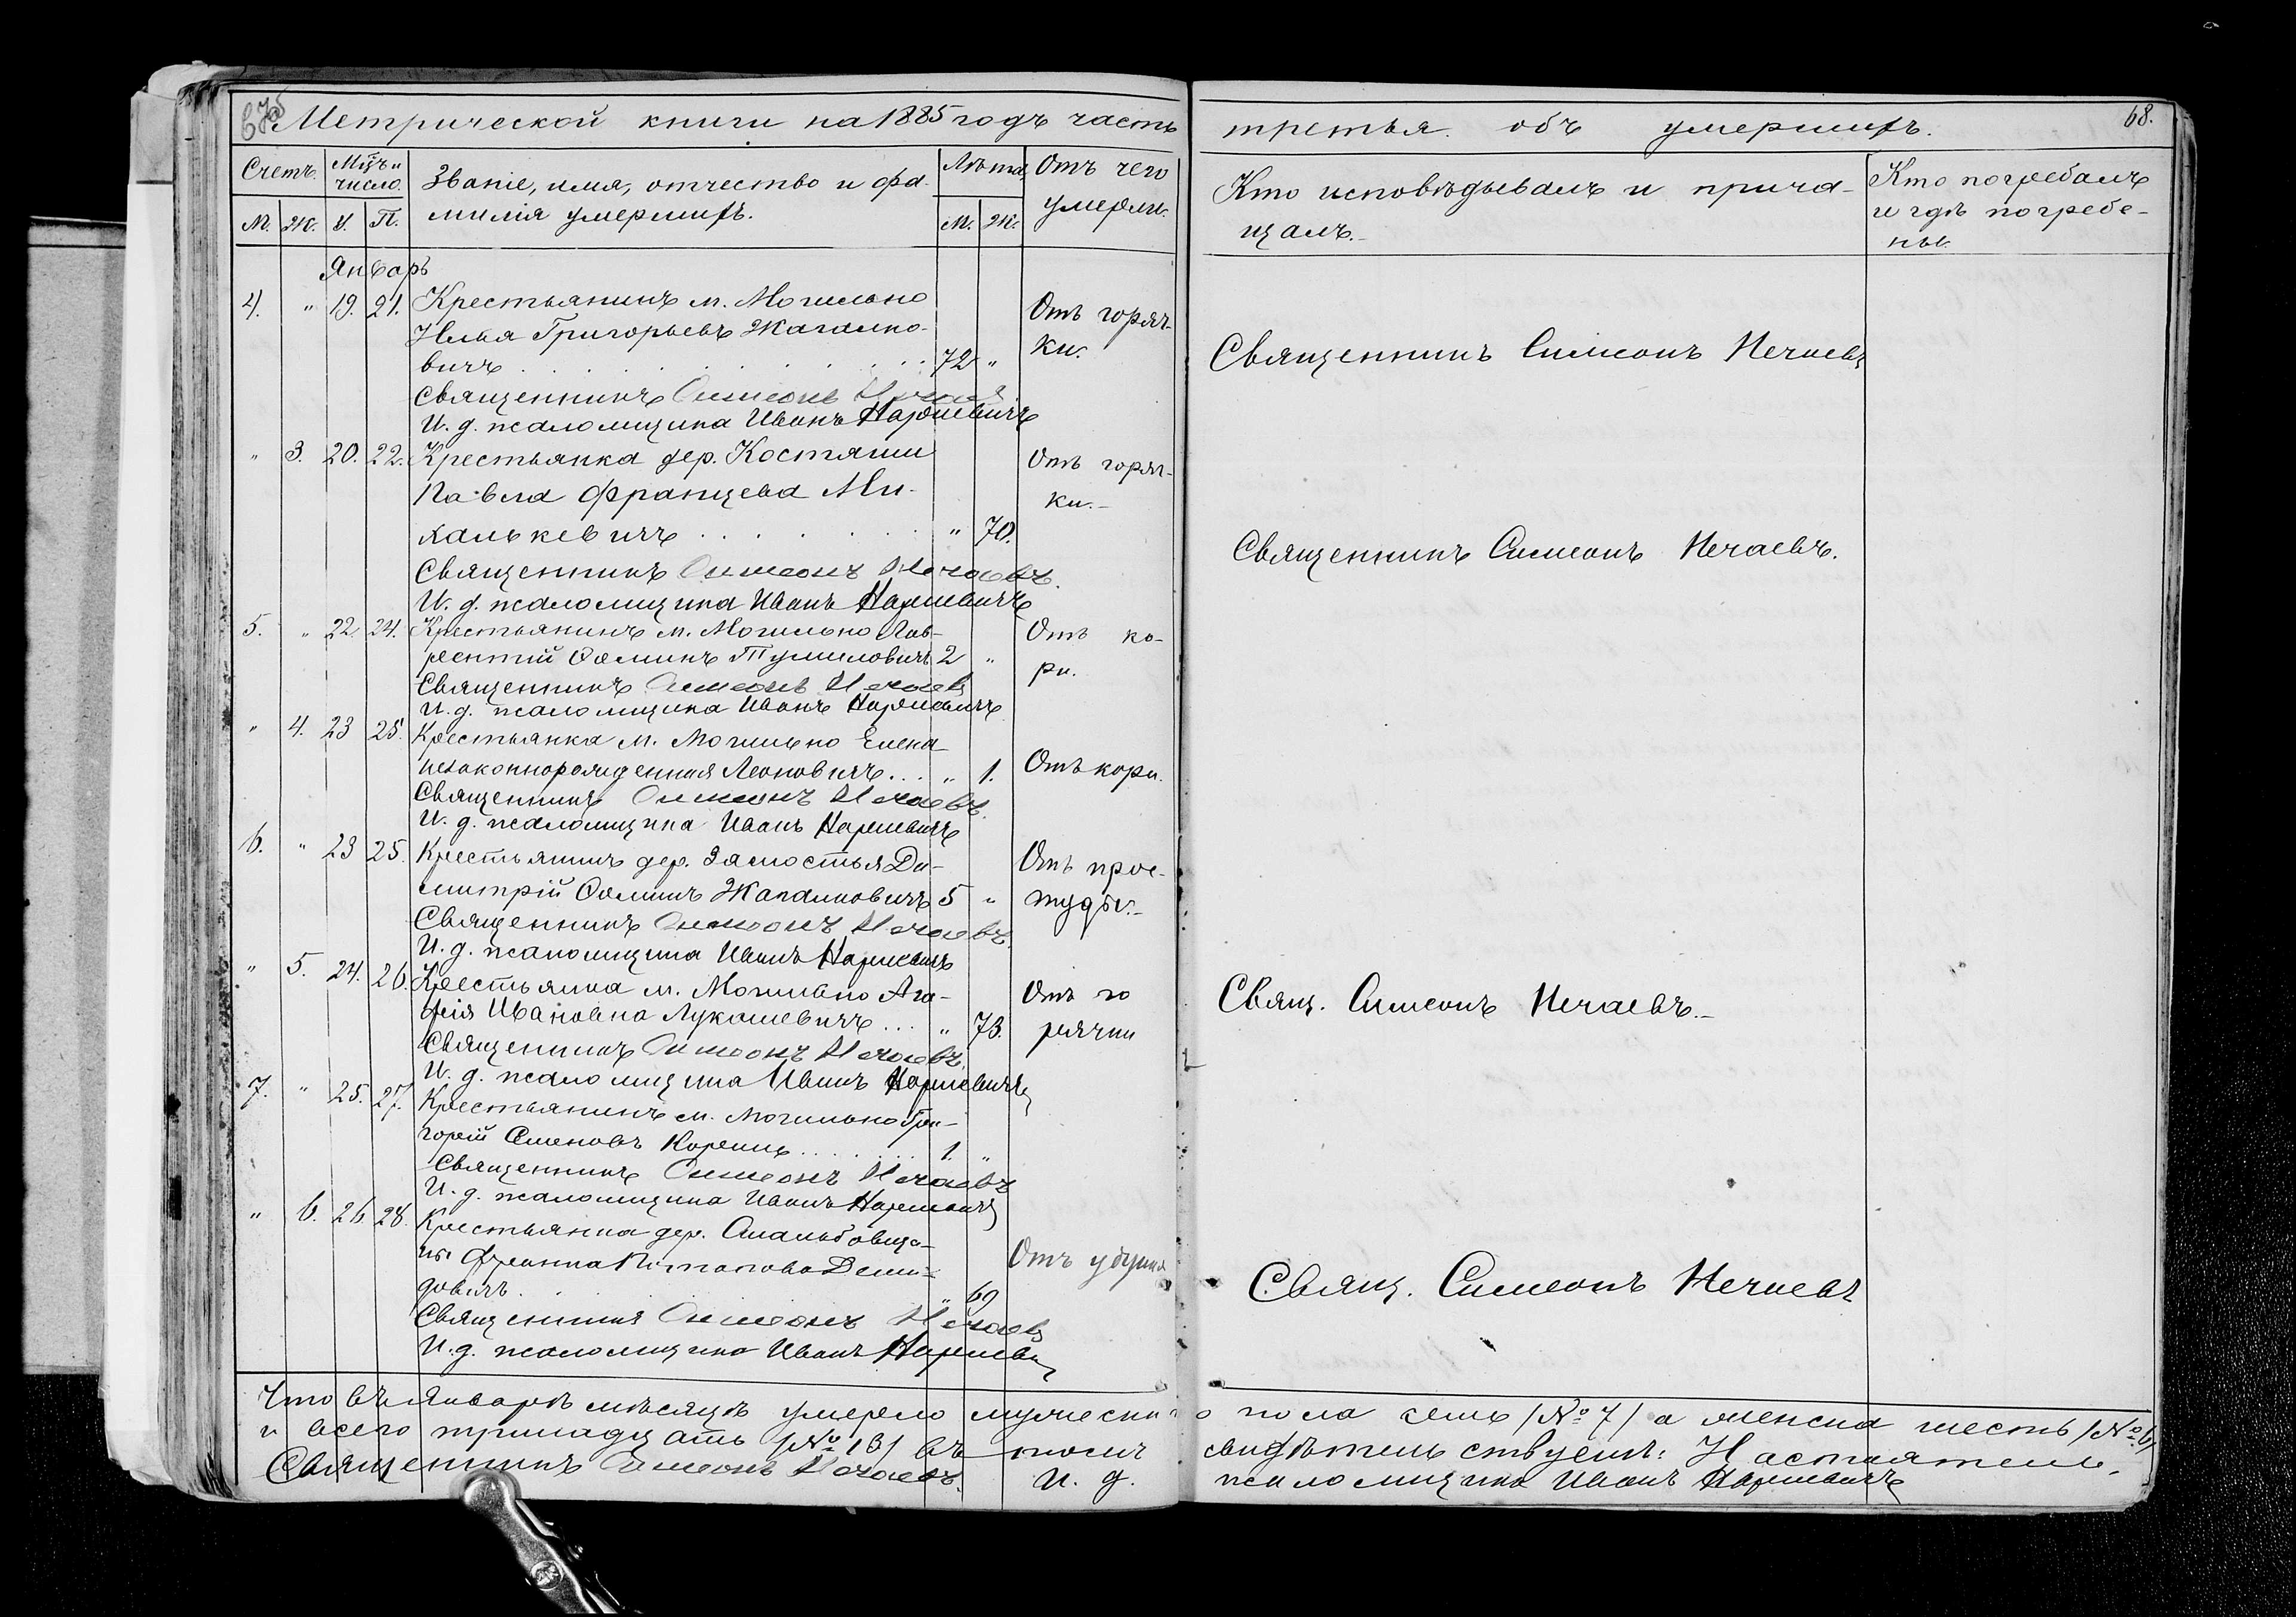 Метрической книги на 1885 годъ часть третья. объ умершихъ. 68.
Счетъ. Мѣц и число. Званіе, имя, отчество и фа- Лѣта Отъ чего Кто исповѣдывалъ и прича- Кто погребалъ
М. Ж. У. П. милія умершихъ. М. Ж. умерли. щалъ. и гдѣ погребе-
ны.
Январь
4. " 19. 21. Крестьянинъ м. Могильно Отъ горяч-
Илья Григорьевъ Жагалко-
вичъ 72 " ки. Священникъ Симеонъ Нечаевъ
Священникъ Симеонъ Нечаевъ
И. д. псаломщика Иванъ
" 3. 20. 22. Крестьянка дер. Костяши Отъ горяч-
Павла Францева Ми- ки.
халькевичъ " 70.
Священникъ Симеонъ Нечаевъ. Священникъ Симеонъ Нечаевъ.
И. д. псаломщика Иванъ
5. " 22. 24. Крестьянинъ м. Могильно Лав- Отъ ко-
рентій Ѳоминъ Тумиловичъ 2 " ри.
Священникъ Симеонъ Нечаевъ
И. д. псаломщика Иванъ
" 4. 23 25. Крестьянка м. Могильно Елена
незаконнорожденная Леоновичъ... " 1. Отъ кори.
Священникъ Симеонъ Нечаевъ.
И. д. псаломщика Иванъ
6. " 23 25. Крестьянинъ дер. Замостья Ди- Отъ прос-
митрій Ѳоминъ Жагалковичъ 5 " туды.
Священникъ Симеонъ Нечаевъ.
И. д. псаломщика Иванъ
" 5. 24. 26. Крестьянка м. Могильно Ага- Отъ го
фія Иванова Лукашевичъ... " 73. рячки Свящ. Симеонъ Нечаевъ.
Священникъ Симеонъ Нечаевъ.
И. д. псаломщика Иванъ
7. " 25. 27. Крестьянинъ м. Могильно Гри-
горій Семеновъ 1. "
Священникъ Симеонъ Нечаевъ
И. д. псаломщика Иванъ
" 6. 26. 28. Крестьянка дер.
Деми- Отъ
довичъ " 69 Свящ. Симеонъ Нечаевъ
Священникъ Симеонъ Нечаевъ
И. д. псаломщика Иванъ
Что въ Январѣ мѣсяцѣ умерло мужеска го пола семь /№ 7/ а женска шесть /№ 6/
и всего тринадцать /№ 13/ въ томъ свидѣтельствуемъ: Настоятель,
Священникъ Симеонъ Нечаевъ. И. д. псаломщика Иванъ